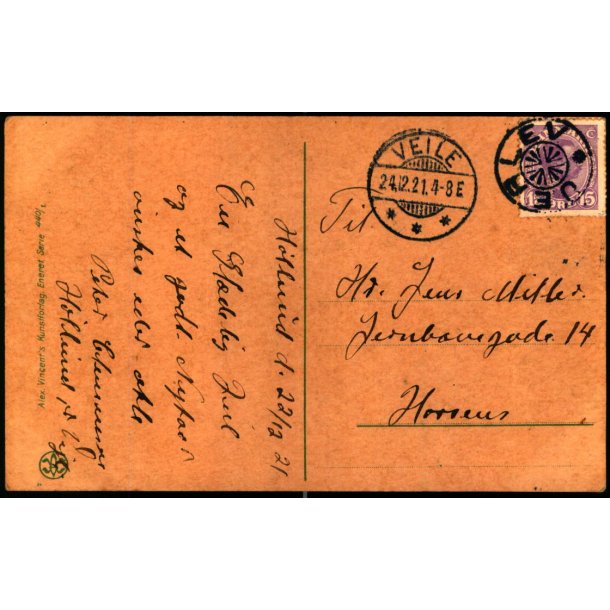 Høllund d. 22/12 21
En Glædelig Jul
og et godt Nytaar
ønskes eder alle
Peter
Høllund
Alex. Vincent's Kunstforlag, Eneret Serie
VEILE
24.12.21.4-8 E
JERLEV
15 ØRE 15
Til
Hr. Jens Møller.
Jernbanegade 14
Horsens